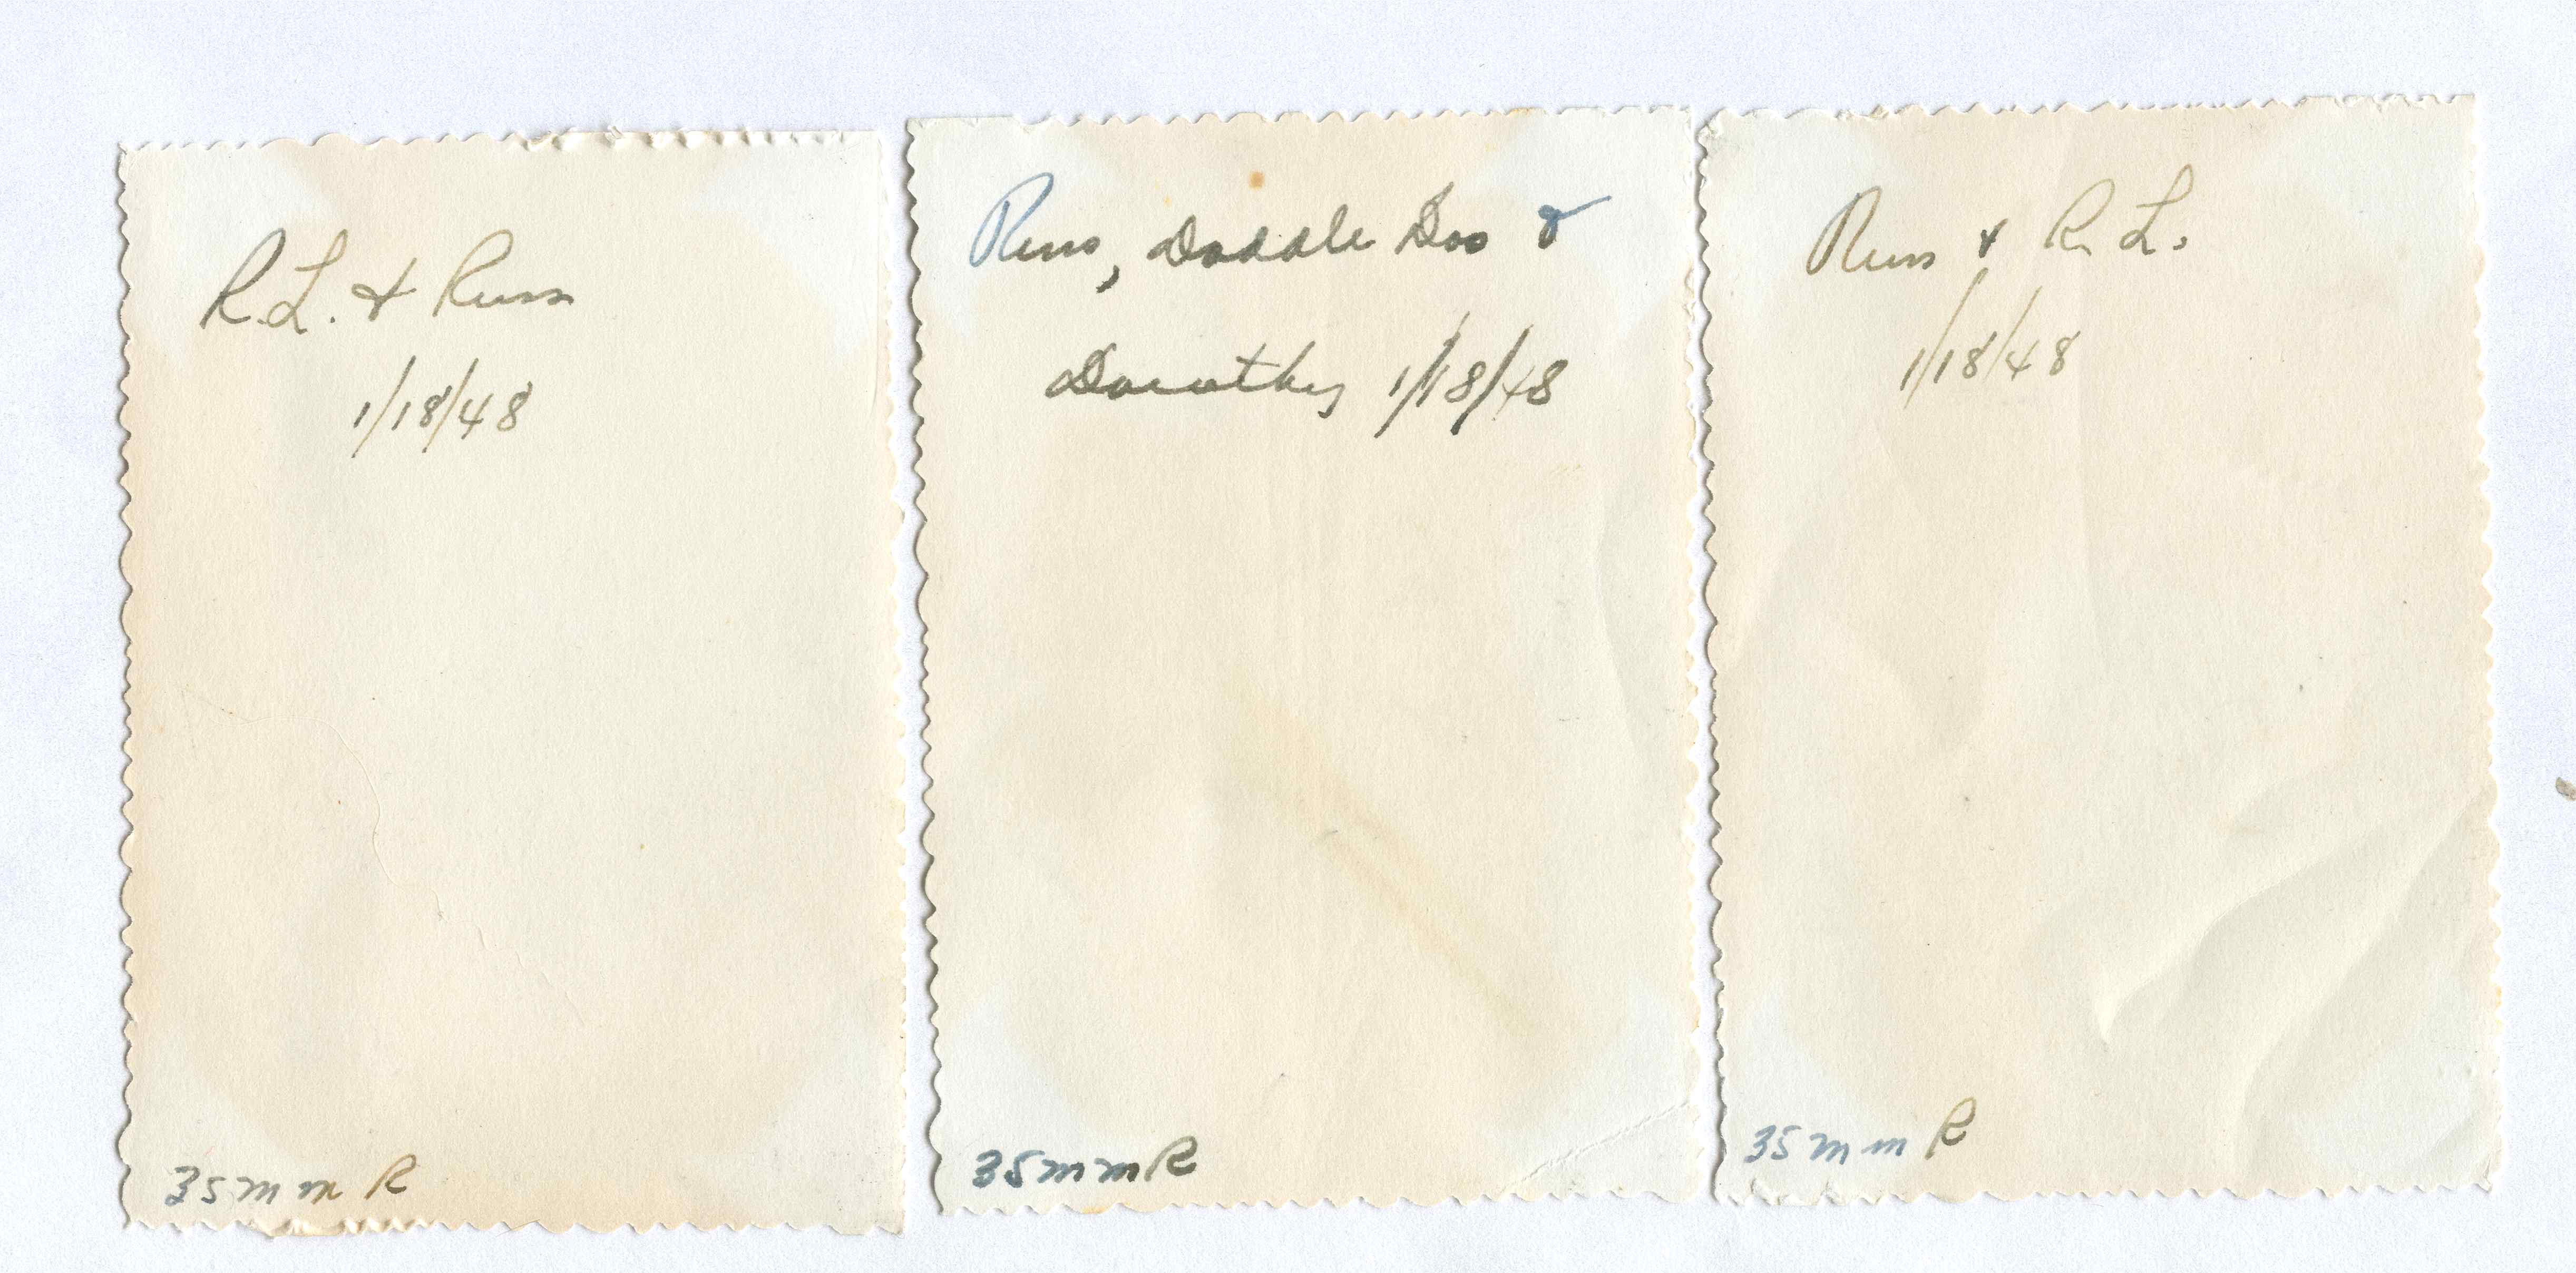 R.L. & Russ
1/18/48
35mm R
Russ, Doddle Doo &
Dorothy 1/18/48
35mmR
Russ & R.L.
1/18/48
35mm R